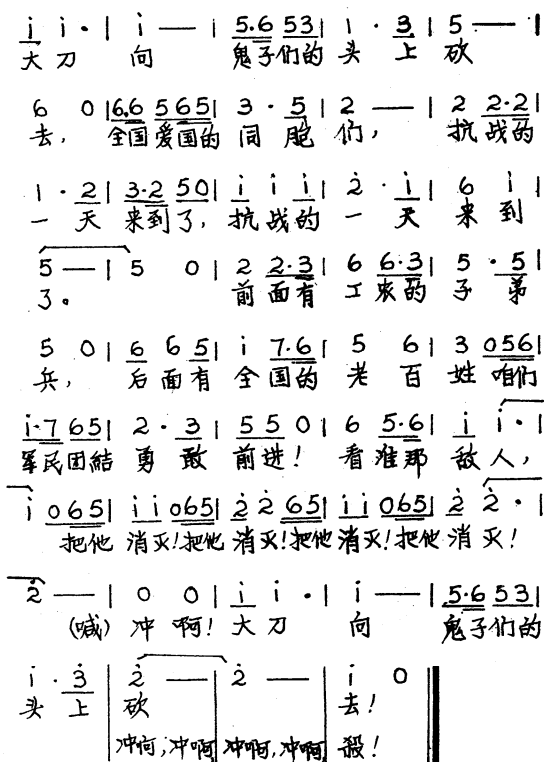 i i · | i — | 5.6 53 | 1 · 3 | 5 — |
大刀 向 鬼子们的 头 上 砍
6 0 | 6.6 565 | 3 · 5 | 2 — | 2 2·2 |
去， 全国爱国的 同 胞 们， 抗 战的
1 · 2 | 3·2 50 | i i i | 2 · i | 6 i |
一 天 来到了，抗战的 一 天 来 到
5 — | 5 0 | 2 2·3 | 6 6·3 | 5 · 5 |
了。 前 面有 工 农的 子 弟
5 0 | 6 6 5 | i 7·6 | 5 6 | 3 056 |
兵， 后面有 全国的 老 百 姓 咱们
i·7 65 | 2 · 3 | 5 5 0 | 6 5·6 | i i · |
军民团结 勇 敢 前进！ 看准那 敌人，
i 065 | i i 065 | 2 2 65 | i i 065 | 2 2 · |
把他 消灭！把他 消灭！把他 消灭！把他 消灭！
2 — | 0 0 | i i · | i — | 5·6 53 |
(喊) 冲 啊！大刀 向 鬼子们的
i · 3 | 2 — | 2 — | i 0 |
头 上 砍 去！
冲啊，冲啊 冲啊，冲啊 殺！